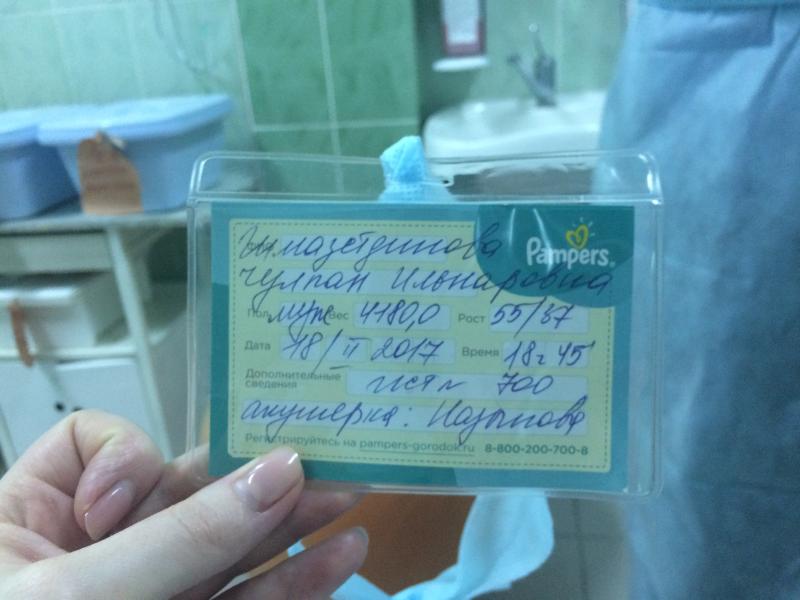 Гимазетдинова
Pampers
Чулпан Ильнаровна
Пол муж Вес 4180,0 Рост 55/37
Дата 18/II 2017 Время 18ч 45'
Дополнительные
сведения ист № 700
акушерка:
Регистрируйтесь на pampers-gorodok.ru 8-800-200-700-8